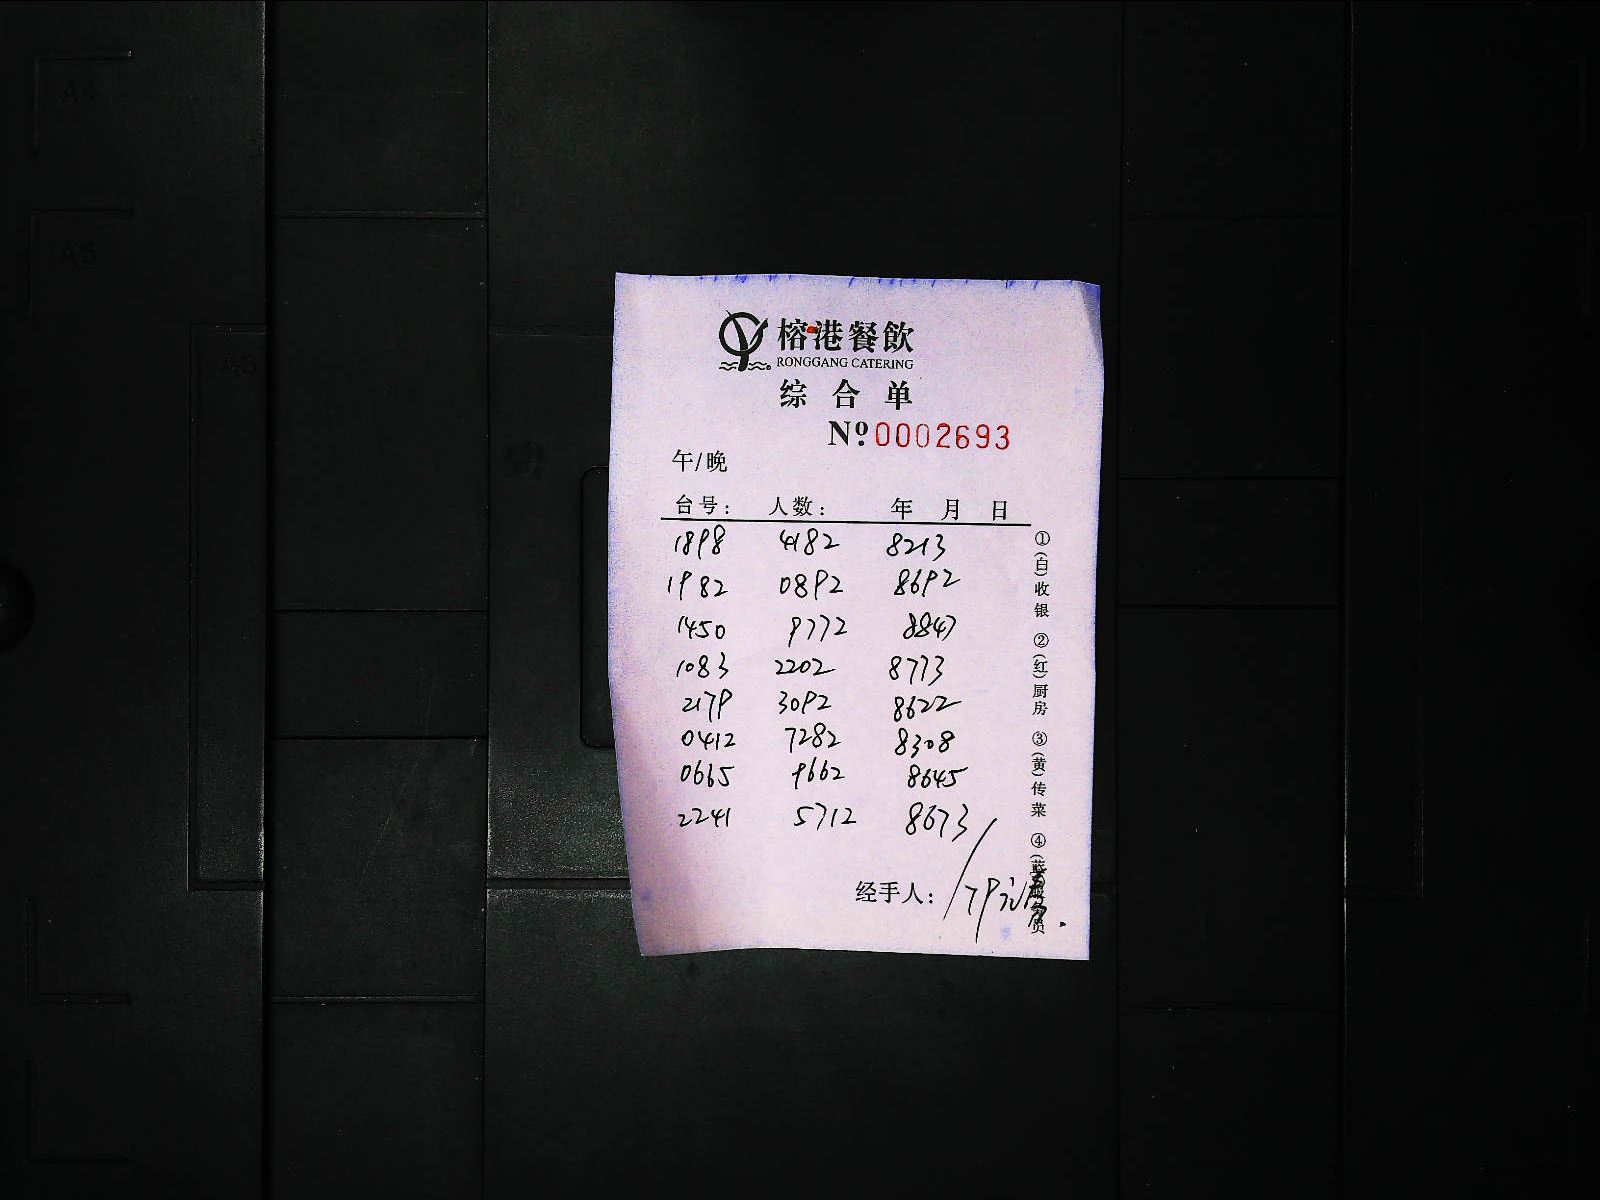 榕港餐飲
RONGGANG CATERING
综合单
Nº 0002693
午/晚
台号： 人数： 年 月 日
1898 4182 8213
1982 0892 8692
1450 9772 8847
1083 2202 8773
2179 3092 8622
0412 7282 8308
0665 9662 8645
2241 5712 8673
经手人：
①(白)收银 ②(红)厨房 ③(黄)传菜 ④(蓝)服务员
A4
A5
A5